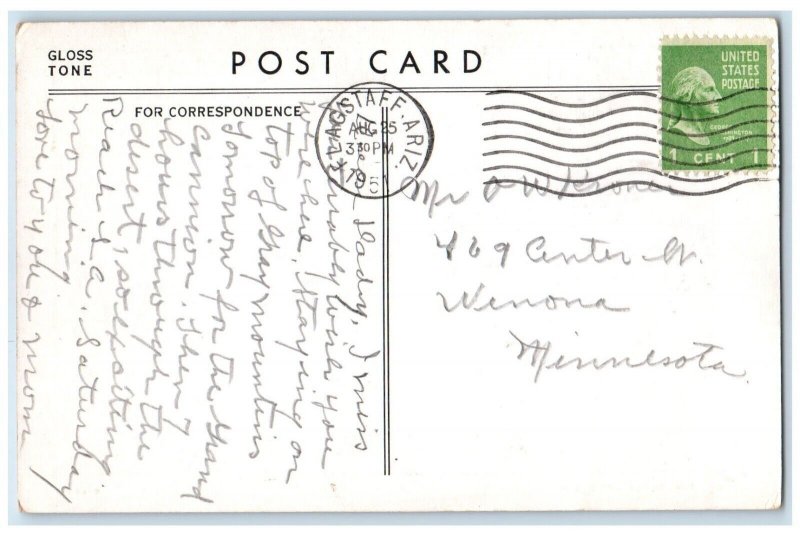 GLOSS
TONE
POST CARD
FOR CORRESPONDENCE
FLAGSTAFF, ARIZ.
AUG 25
3 30 PM
1951
UNITED
STATES
POSTAGE
1 CENT 1
Mr O W
469 Center St.
Winona
Minnesota
Daddy, I miss
wish you
were here. Staying on
top of Gray mountins
Tomorrow for the Grand
Cannion. Then 7
hours through the
desert, so
Reach L.A. Saturday
morning.
Love to you & mom